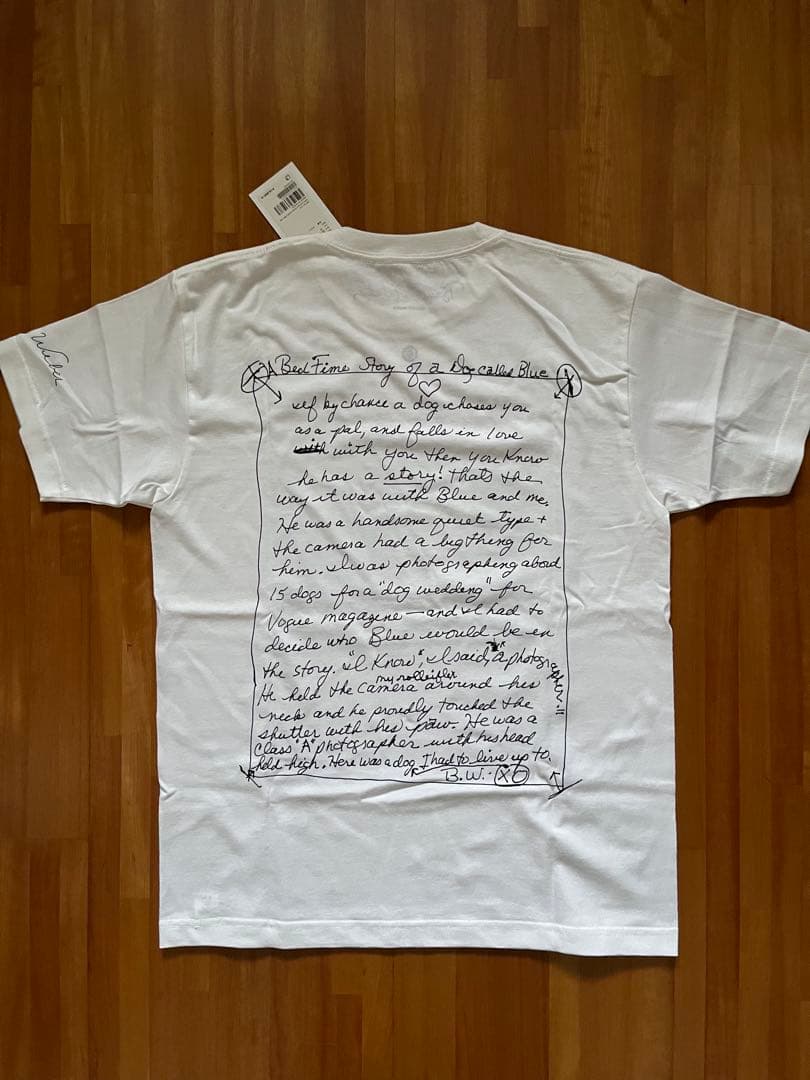 Weber
A Bed Time Story of a Dog called Blue
If by chance a dog choses you
as a pal, and falls in love
with with you then you know
he has a story! Thats the
way it was with Blue and me.
He was a handsome quiet type +
the camera had a big thing for
him. I was photographing about
15 dogs for a "dog wedding" for
Vogue magazine — and I had to
decide who Blue would be in
the story. "I Know", I said, "A photographer.!!
my rolleiflex
He held the camera around his
neck and he proudly touched the
shutter with his paw. He was a
class "A" photographer with his head
held high. Here was a dog I had to live up to.
B.W. XO